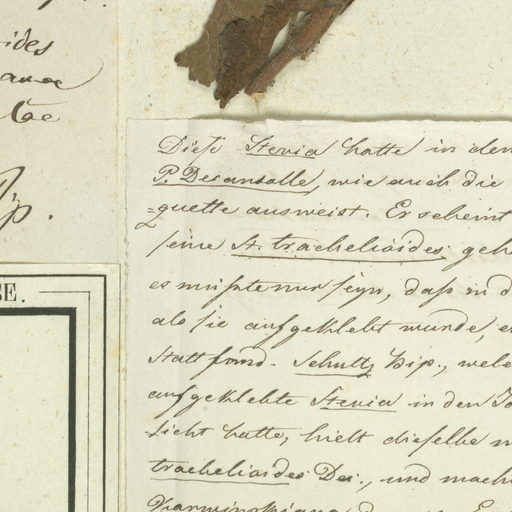 ides
anae
tae
ip.
SE.
Diese Stevia hatte in den
P. Decandolle, wie auch die
=quette ausweist. Er scheint
seine St. trachelioides geh
es müsste nur seyn, dass in d
als sie aufgeklebt wurde, e
statt fand. Schultz bip., wele
aufgeklebte Stevia in den Ja
sicht hatte, hielt dieselbe n
trachelioides Dec., und mach
Karwinskiana